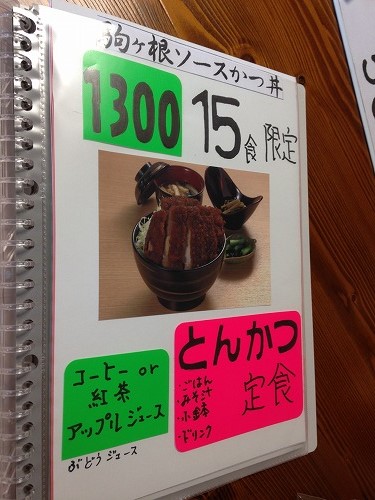 駒ヶ根ソースかつ丼
1300
15食限定
とんかつ
定食
・ごはん
・みそ汁
・小鉢
・ドリンク
コーヒー or
紅茶
アップルジュース
ぶどうジュース